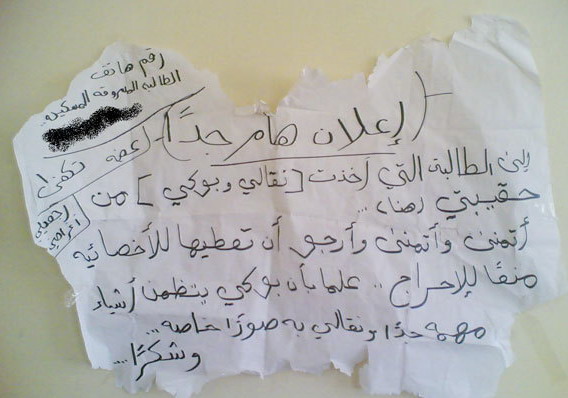 رقم هاتف
الطالبة المسروقة المسكينة
(إعلان هام جدًا)
إلى الطالبة التي أخذت [نقالي وبوكي] من
حقيبتي (هناء)...
أتمنى وأتمنى وأرجو أن تعطيها للأخصائيه
منعًا للإحراج .. علما بأن بوكي يتظمن أشياء
مهمه جدًا ونقالي به صورًا خاصه...
وشكرًا...